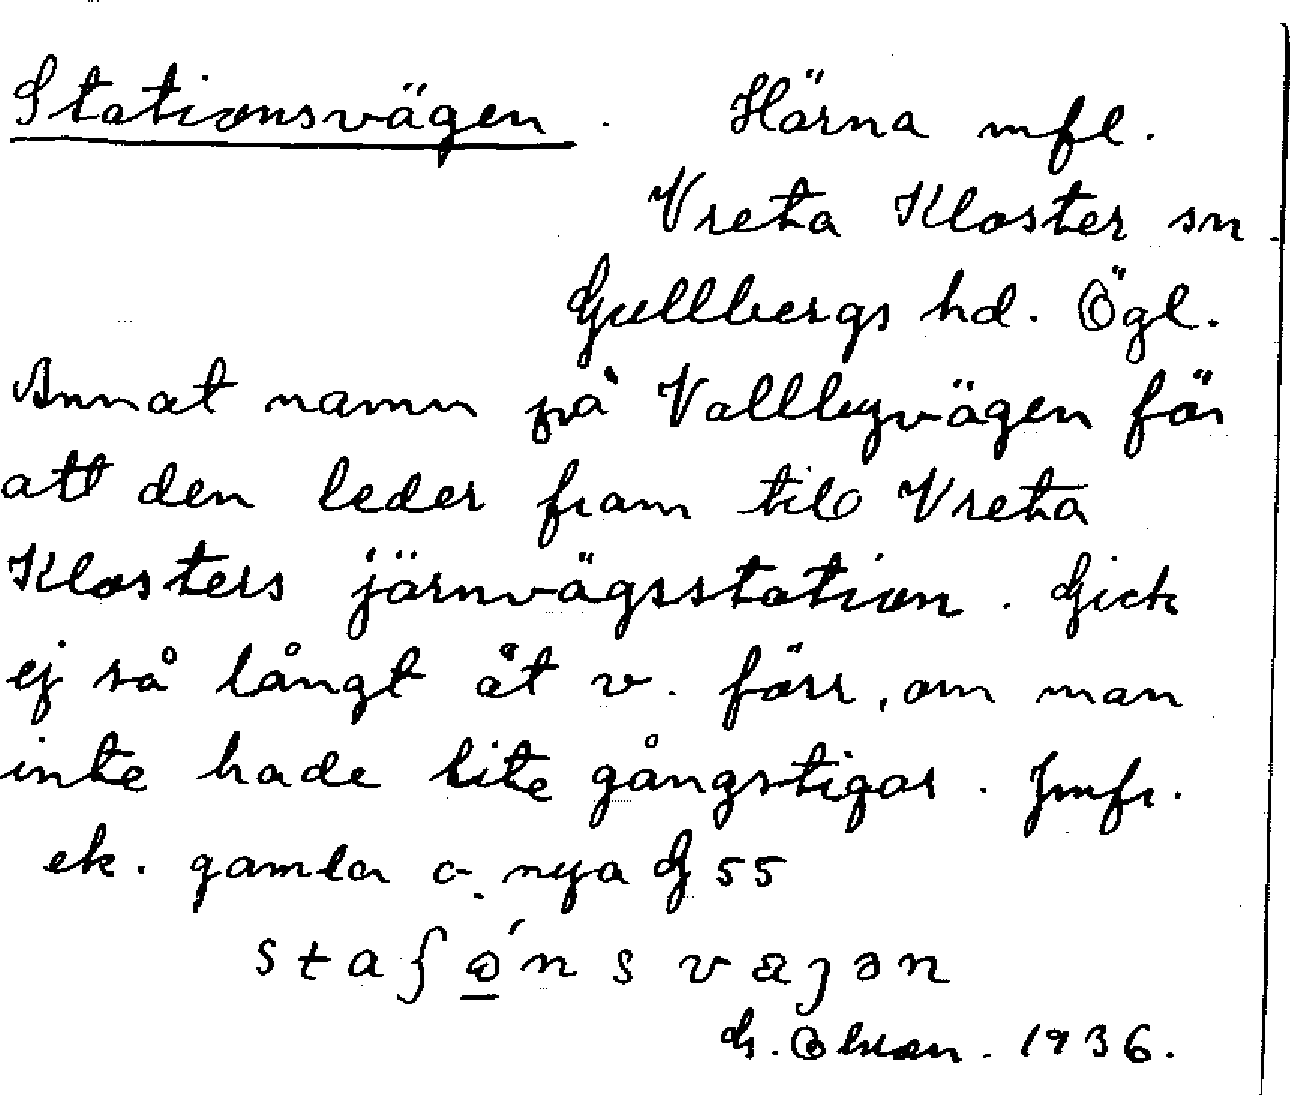 Stationsvägen. Härna mfl.
Vreta Kloster sn.
Gullbergs hd. Ögl.
Annat namn på Vallbyvägen för
att den leder fram till Vreta
Klosters järnvägsstation. Gick
ej så långt åt v. förr, om man
inte hade lite gångstigar. Jmfr.
ek. gamla o. nya G 55
staʃó̲nsvæȷən
1936.